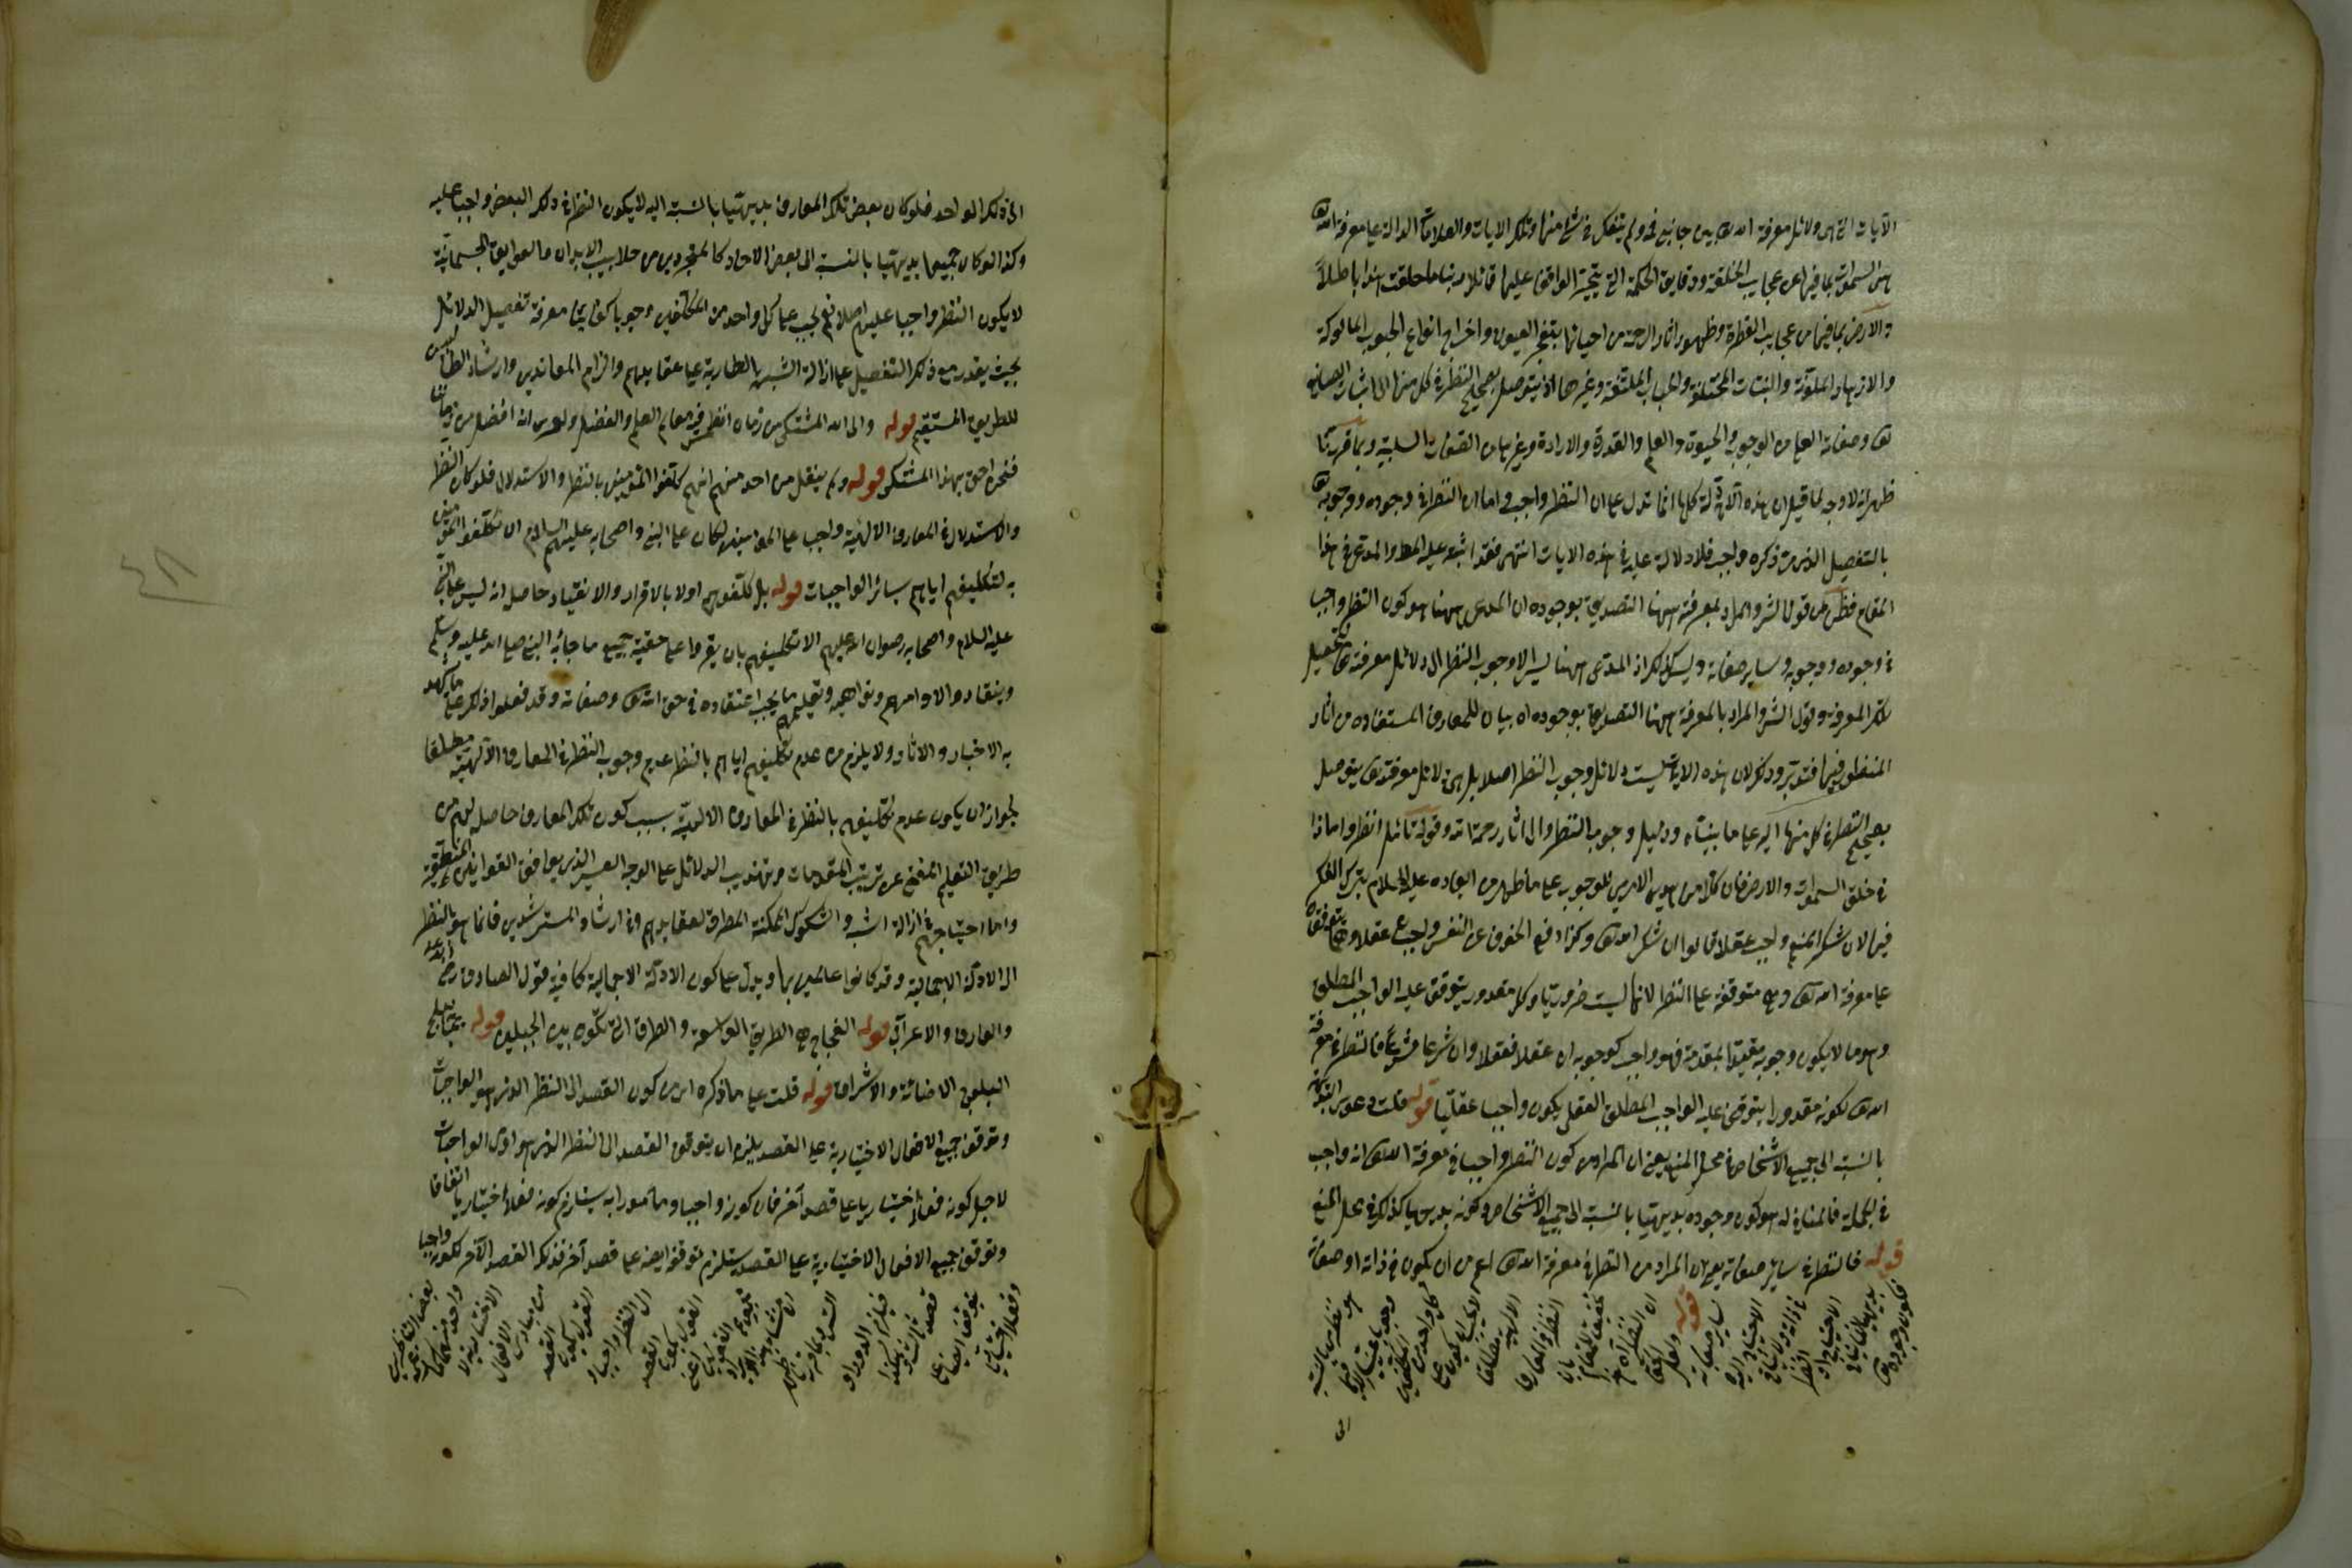 الآيات التي هي دلائل معرفة الله تعالى بين جانبي فمه ولم يتفكر في شيء منها وتلك الايات والعلامات الدالة على معرفة الله تعالى
هي السموات بما فيها من عجايب الخلقة ودقايق الحكمة التي يتحير الواقف عليها قائلا ربنا ما خلقت هذا باطلاً
والارض بما فيها من عجايب الفطرة وظهور اثار الرحمة من احيائها بتفجر العيون واخراج انواع الحبوب المأكولة
والازهار الملونة والنبات المختلفة وغيرها اذ يتوصل بصحيح النظر في كل منها الى اثبات الصانع
تعالى وصفاته العلى من الوجوب والحيوة والعلم والقدرة والارادة وغيرها من الصفات السلبية وبما قررنا
ظهر انه لا وجه لما قيل ان هذه الادلة كلها انما تدل على ان النظر واجب واما ان النظر في وجوده ووجوبه تعالى
بالتفصيل الذي ذكره واجب فلا دلالة عليه في هذه الايات انتهى فقد اشتبه عليه المط والمدعى في هذا
المقام فظن من قول الش والمراد بمعرفته ههنا التصديق بوجوده ان المدعى ههنا هو كون النظر واجب
في وجوده ووجوبه وساير صفاته وليس كذلك اذ المدعى ههنا ليس الا وجوب النظر الى دلائل معرفته تعالى لتحصيل
تلك المعرفة وقول الش والمراد بالمعرفة ههنا التصديق بوجوده اه بيان للمعارف المستفادة من اثار
المنظور فيها فتدبر وذلك لان هذه الايات ليست دلائل وجوب النظر اصلا بل هي دلائل معرفته تعالى يتوصل
بصحيح النظر في كل منها اليه على ما بيناه ودليل وجوب النظر فانظروا الى اثار رحمة الله وقوله تعالى قل انظروا ماذا
في خلق السموات والارض فان كلا من هذين الامرين للوجوب على ما ظهر من ايعاده عليه السلام بترك الفكر
فيها لان شكر المنعم واجب عقلا قالوا ان شكر الله تعالى وكذا دفع الخوف عن النفس واجب عقلا وهما يتوقفان
على معرفة الله تعالى وهي متوقفة على النظر لانها ليست ضرورية وكل مقدور يتوقف عليه الواجب المطلق
وهو ما لا يكون وجوبه مقيدا بمقدمة فهو واجب كوجوبه ان عقلا فعقلا وان شرعا فشرعا فالنظر في معرفة
الله تعالى لكونه مقدورا يتوقف عليه الواجب المطلق العقلي يكون واجبا عقليا قوله قلت دعوى البداهة
بالنسبة الى جميع الاشخاص في محل المنع يعني ان المراد من كون النظر واجبا في معرفة الله تعالى انه واجب
في الجملة فالمنافي له هو كون وجوده بديهيا بالنسبة الى جميع الاشخاص وكونه بديهيا كذلك في محل المنع
قوله فالنظر في ساير صفاته يعني ان المراد من النظر في معرفة الله تعالى اعم من ان يكون في ذاته او صفاته
فكون وجوده تعالى
بديهيا لا ينافي
الاحتياج الى
النظر
في ذاته ولا ينافي
الاحتياج اليه
ساير صفاته
قوله
ان النظر
بان
النظر في المعارف
الالهية مطلقا
كل واحد من
المكلفين
الى
الى ذلك الواحد فلو كان بعض تلك المعارف بديهيا بالنسبة اليه لا يكون النظر في ذلك البعض واجب عليه
وكذا لو كان جميعها بديهيا بالنسبة الى بعض الاحاد كالمتجردين من جلابيب الابدان والعوايق الجسمانية
لا يكون النظر واجبا عليهم اصلا نعم يجب على كل واحد من المكلفين وجوبا كفائيا معرفة تفصيل الدلائل
بحيث يقدر مع ذلك التفصيل على ازالة الشبهة الطارية على عقايدهم والزام المعاندين وارشاد الطالبين
للطريق المستقيم قوله والى الله المشتكى من زمان انطمس فيه معالم العلم والفضل ولعمرى انه افضل من زماننا
فنحن احق بهذا المشتكى قوله ولم ينقل من احد منهم انهم كلفوا المؤمنين بالنظر والاستدلال فلو كان النظر
والاستدلال في المعارف الالهية واجب على المؤمنين لكان على النبي واصحابه عليهم السلام ان تكلفوا المؤمنين
به لتكليفهم اياهم بسائر الواجبات قوله بل كلفوهم اولا بالاقرار والانقياد حاصله انه ليس على النبي
عليه السلام واصحابه رضوان الله عليهم الا تكليفهم بان يقروا على حقية جميع ما جاء به النبي صلى الله عليه وسلم
وينقادوا لاوامرهم ونواهيه وتعليمهم ما يجب اعتقاده في حق الله تعالى وصفاته وقد فعلوا ذلك على ما شهد
به الاخبار والاثار ولا يلزم من عدم تكليفهم اياهم بالنظر عدم وجوب النظر في المعارف الالهية مطلقا
لجواز ان يكون عدم تكليفهم بالنظر في المعارف الالهية بسبب كون تلك المعارف حاصلة لهم من
طريق التعليم المغني عن ترتيب المقدمات وتهذيب الدلائل على الوجه العسير الذي يوافق القوانين المنطقية
واما احتياجهم في ازالة الشبه والشكوك الممكنة المطرقة لعقايدهم وفي ارشاد المسترشدين فانما هو بالنظر
الى الادلة الاجمالية وقد كانوا عالمين بها ويدل على كون الادلة الاجمالية كافية قول الصادق رضى الله عنه
والعارف والاعرابي قوله الفجاج هي الطريق الواسعة والطرق التي تكون بين الجبلين قوله تبتلج
البلوج الاضائة والاشراق قوله قلت على ما ذكره اى من كون القصد الى النظر الذي هو الواجبات
وتوقف جميع الافعال الاختيارية على القصد يلزم ان يتوقف القصد الى النظر الذي هو اول الواجبات
لاجل كونه فعلا اختياريا على قصد آخر فان كونه واجبا ومأمورا به يستلزم كونه فعلا اختياريا اتفاقا
وتوقف جميع الافعال الاختيارية على القصد يستلزم توقفه ايضا على قصد آخر فذلك القصد الآخر لكونه واجبا
وفعلا اختياريا
يتوقف ايضا على
قصد ثالث
وهكذا
فيلزم الدور او
التس
القصد
الى النظر واجبا
القصد
من مبادى
الافعال
الاختيارية
٤٨